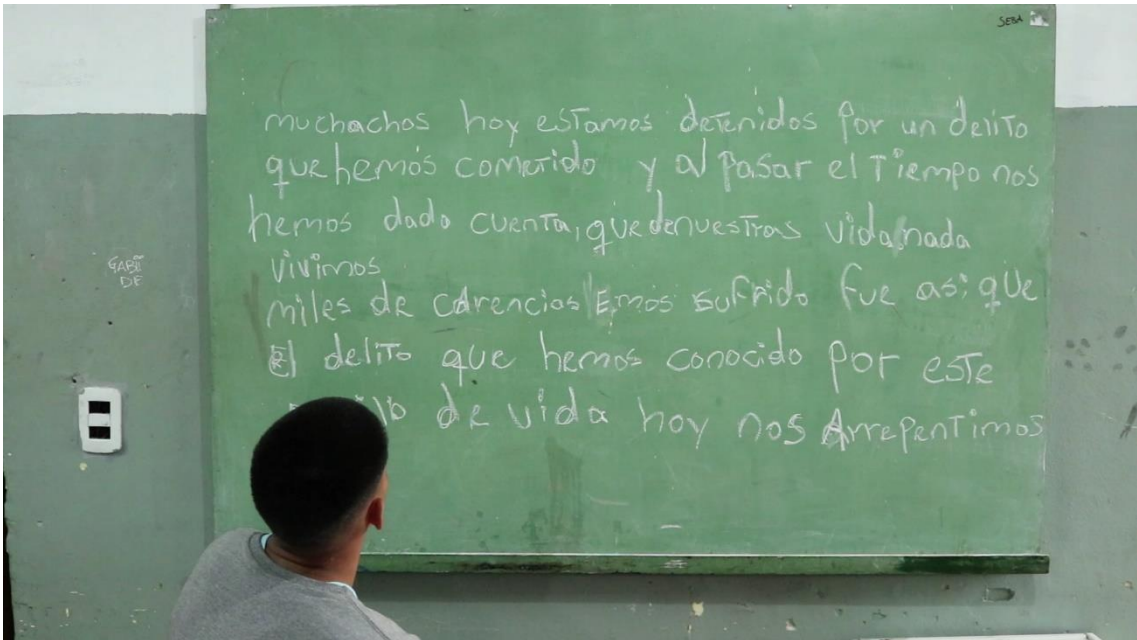 SEBA
muchachos hoy estamos detenidos por un delito
que hemos cometido y al pasar el tiempo nos
hemos dado cuenta, que de nuestras vida nada
vivimos
miles de carencias Emos sufrido fue asi que
El delito que hemos conocido por este
de vida hoy nos Arrepentimos
GABII
DE